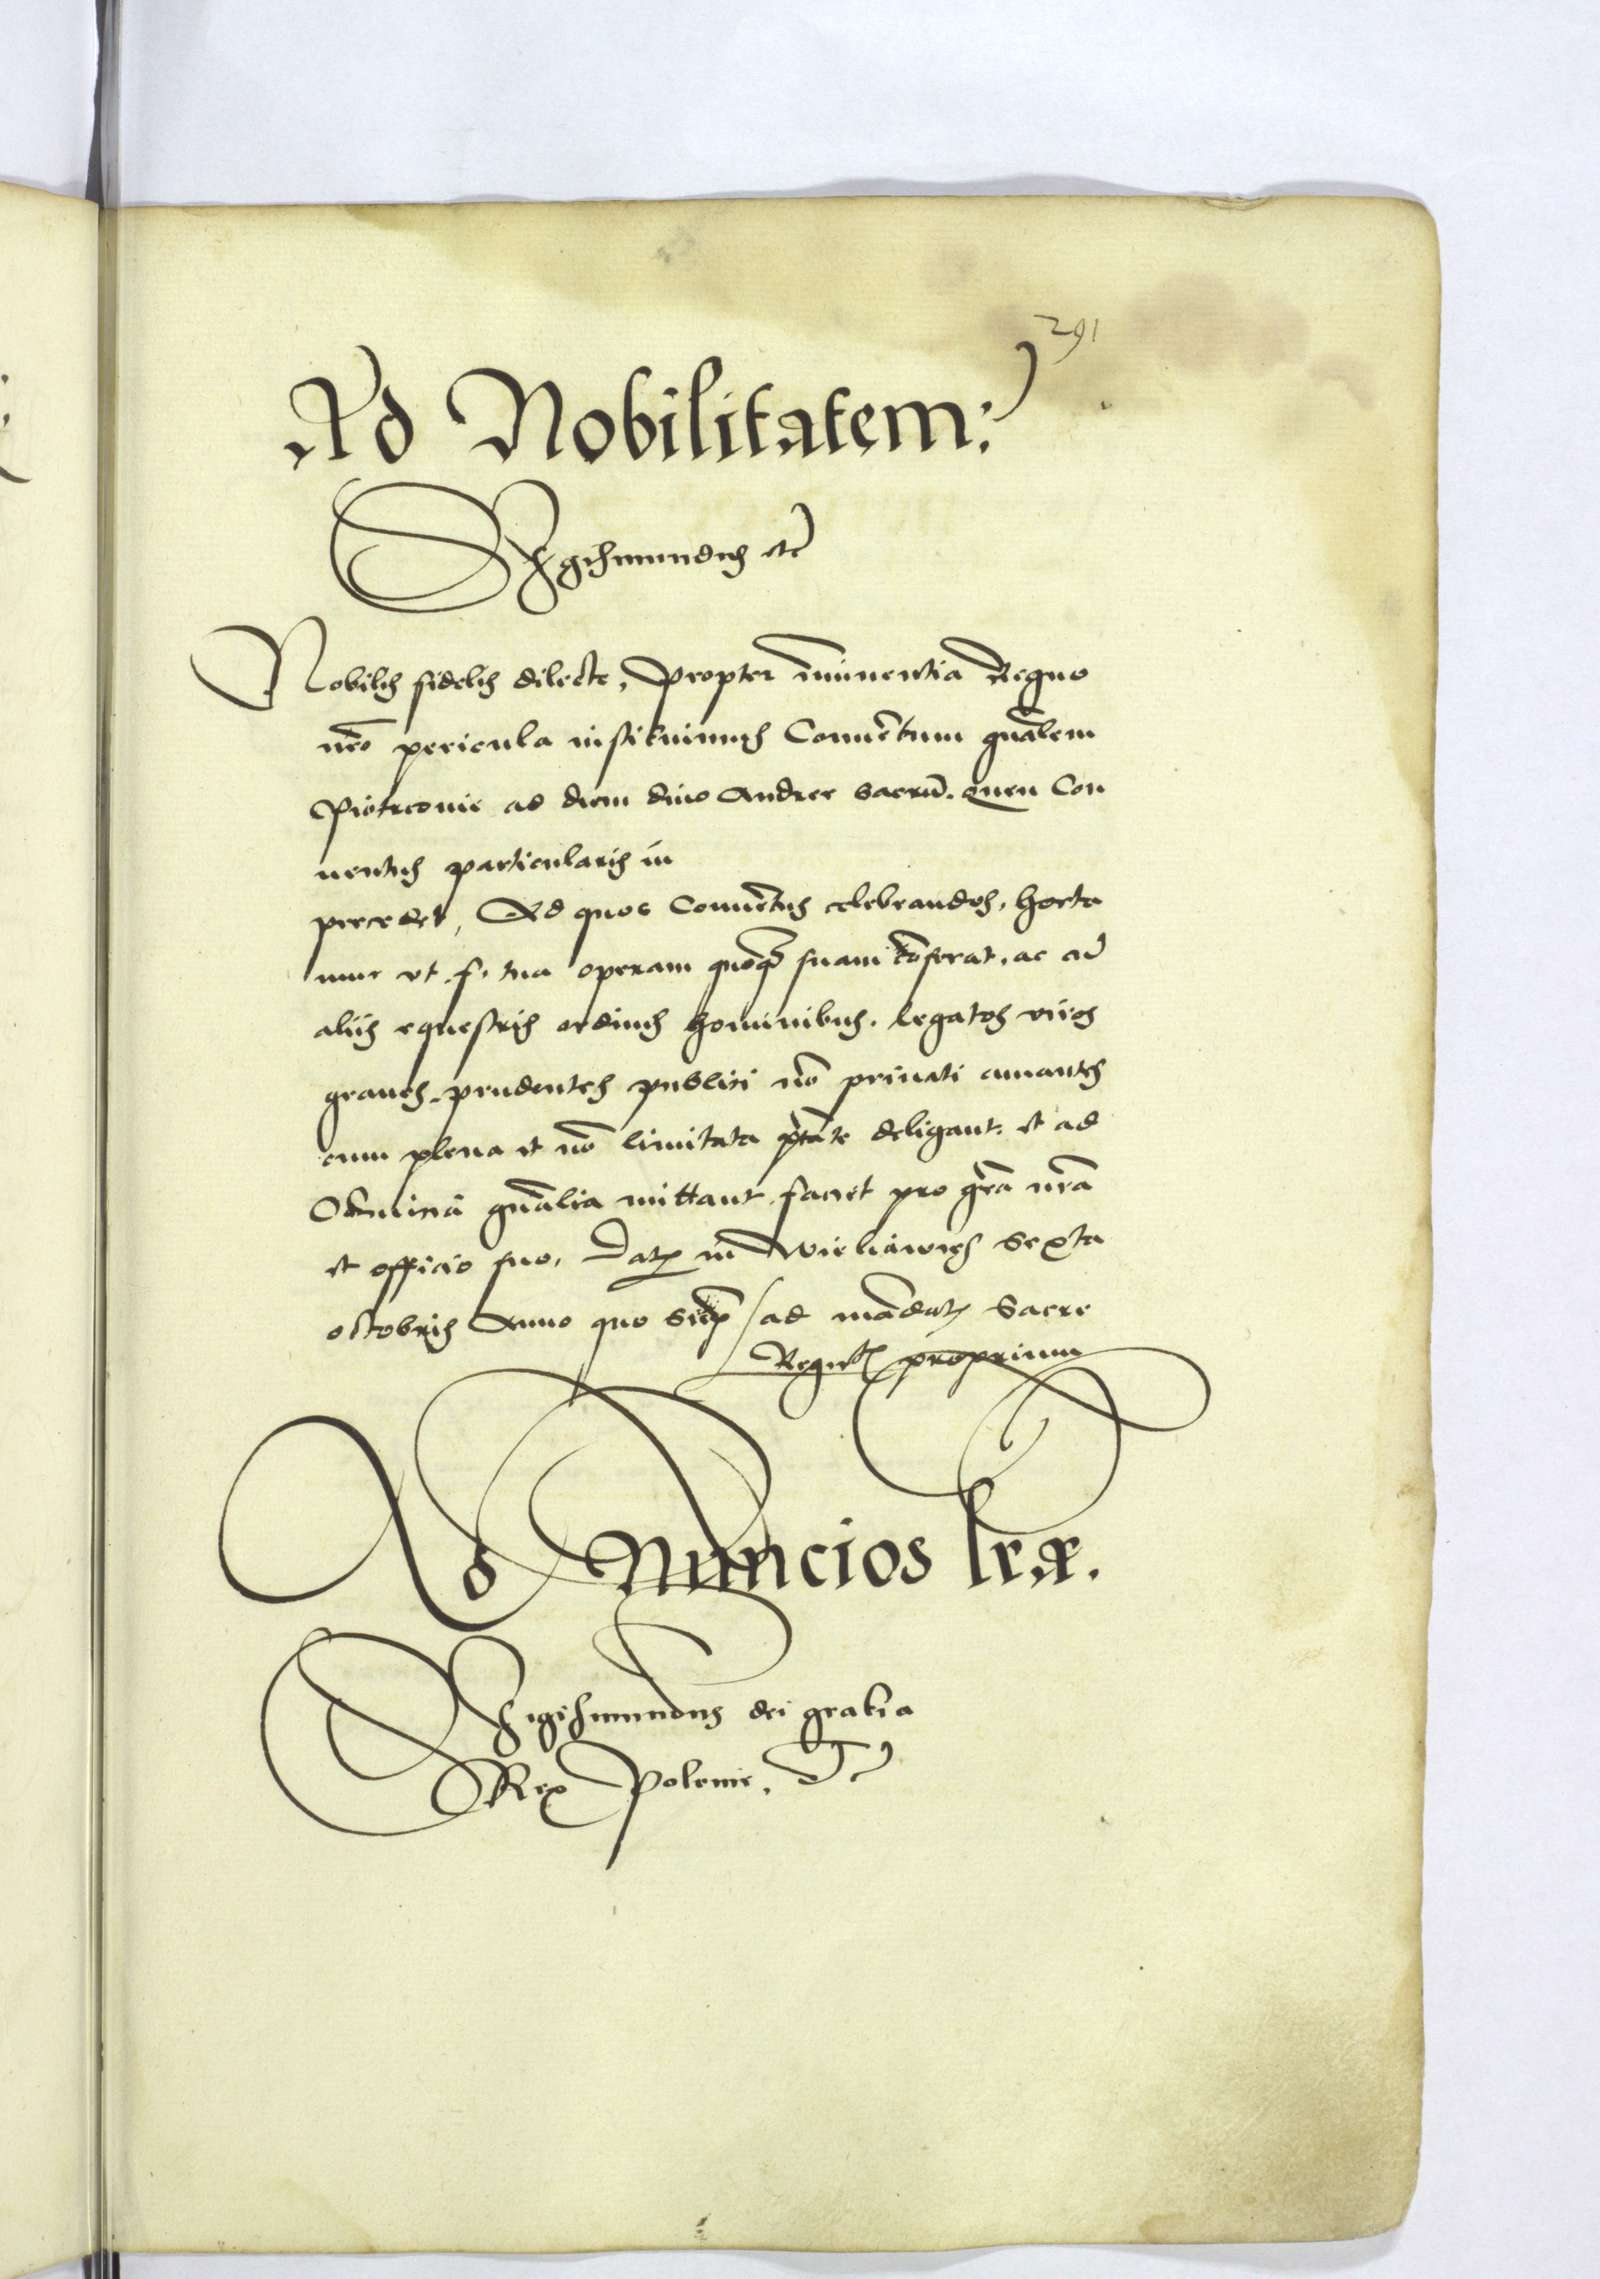 291
Ad Nobilitatem:
Sigismundus etc
Nobilis fidelis dilecte, Propter imminentia Regno
nrõ pericula instituimus Conuẽtum gnãlem
Piotrcouie ad diem diuo Andree sacrũ. quem Con
uentus particularis in
precedet, Ad quos Conuẽtus celebrandos, horta
mur vt f. tua operam quoqȝ suam cõferat, ac cũ
aliis equestris ordinis hominibus, legatos viros
graues, prudentes publici nõ priuati amantes
cum plena et nõ limitata ptãte deligant, et ad
Comicia gnãlia mittant, faciet pro grã nrã
et officio suo, Dat in Sexta
octobris Anno quo ad mãdat Sacre
Regie proprium
Ad Nuncios trar.
Sigismundus dei gratia
Rex Polonie, etc